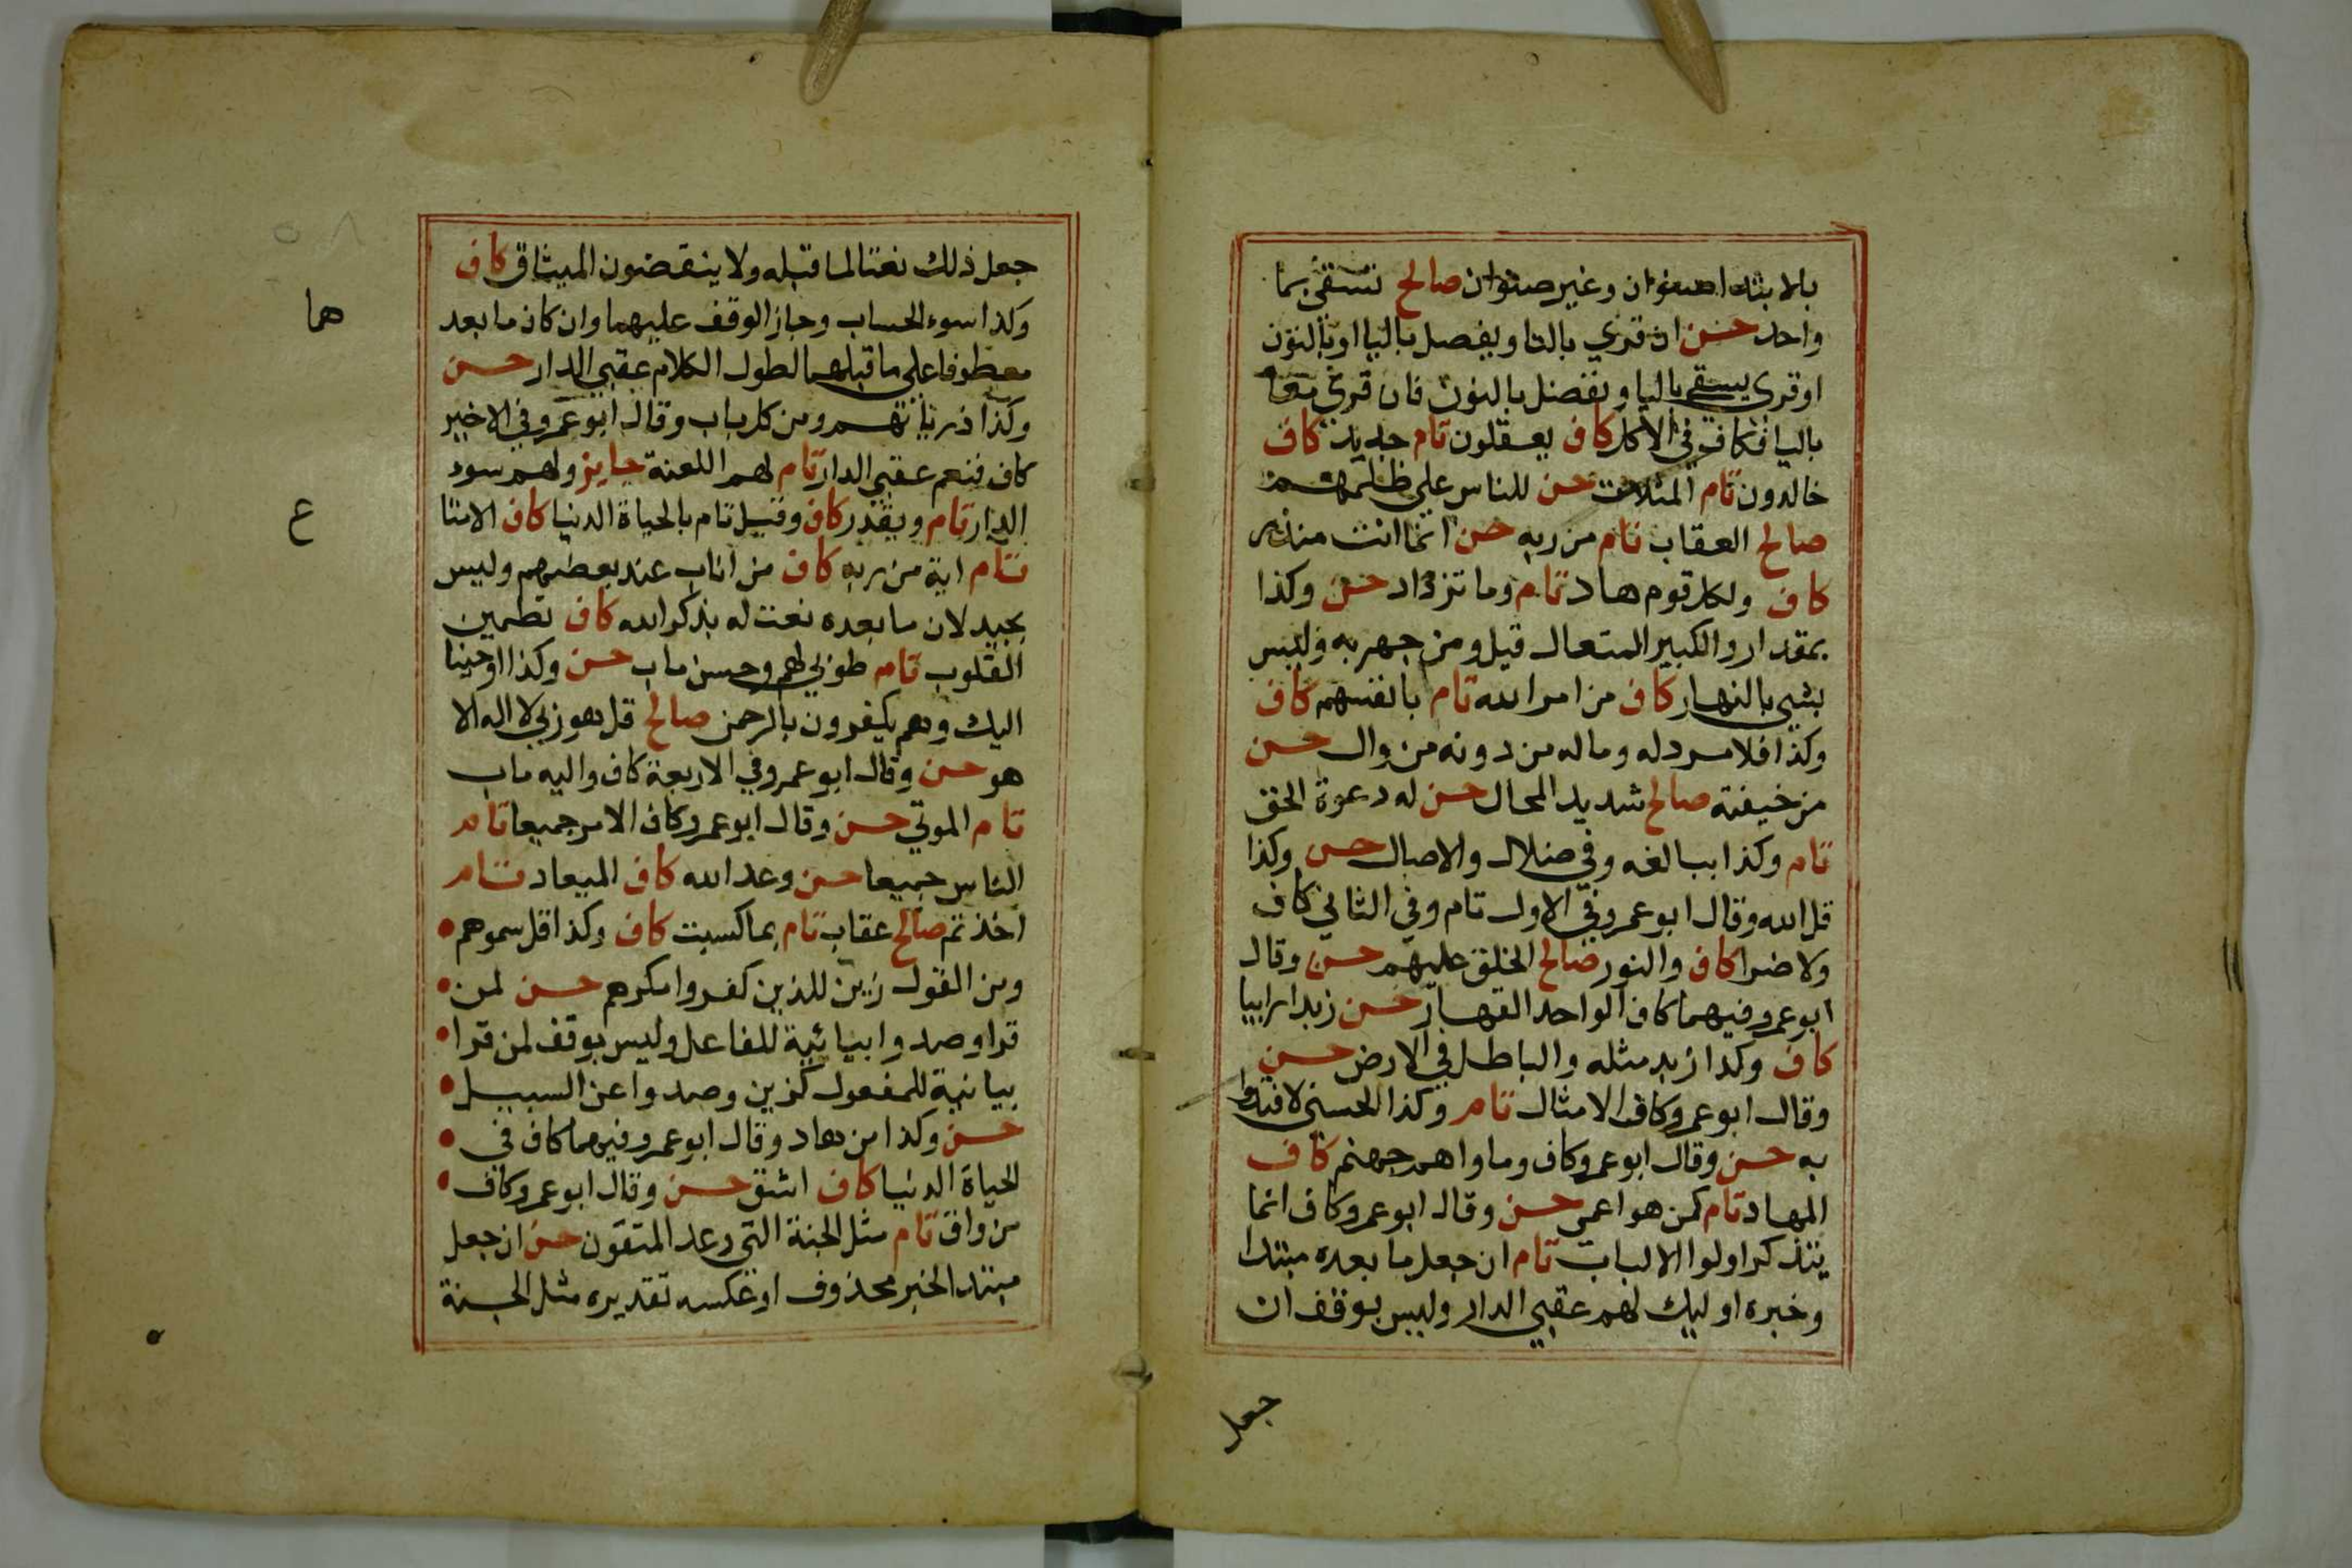 بالابتدا صنوان وغير صنوان صالح تسقى بما
واحد حسن ان قري بالتا ويفصل باليا او بالنون
او قرى يسقى باليا ونفصل بالنون فان قرى معا
باليا فكاف في الاكل كاف يعقلون تام جديد كاف
خالدون تام المثلات حسن للناس على ظلمهم
صالح العقاب تام من ربه حسن انما انت منذر
كاف ولكل قوم هاد تام وما تزداد حسن وكذا
بمقدار والكبير المتعال قيل ومن جهر به وليس
بشي بالنهار كاف من امر الله تام بانفسهم كاف
وكذا فلا مرد له وماله من دونه من وال حسن
من خيفته صالح شديد المحال حسن له دعوة الحق
تام وكذا ببالغه وفي ضلال والاصال حسن وكذا
قل الله وقال ابو عمرو في الاول تام وفي الثاني كاف
ولا ضرا كاف والنور صالح الخلق عليهم حسن وقال
ابو عمرو فيهما كاف الواحد القهار حسن زبدا رابيا
كاف وكذا زبد مثله والباطل في الارض حسن
وقال ابو عمرو كاف الامثال تام وكذا الحسنى لافتدوا
به حسن وقال ابو عمرو كاف وماواهم جهنم كاف
المهاد تام كمن هو اعمى حسن وقال ابو عمرو كاف انما
يتذكر اولوا الالباب تام ان جعل ما بعده مبتدا
وخبره اوليك لهم عقبي الدار وليس بوقف ان
جعل
جعل ذلك نعتا لما قبله ولا ينقضون الميثاق كاف
وكذا سوء الحساب وجاز الوقف عليهما وان كان ما بعد
هما
معطوفا على ما قبلهما لطول الكلام عقبي الدار حسن
وكذا ذرياتهم ومن كل باب وقال ابو عمرو في الاخير
كاف فنعم عقبي الدار تام لهم اللعنة جايز ولهم سوء
الدار تام ويقدر كاف وقيل تام بالحياة الدنيا كاف الا متا
ع
تام اية من ربه كاف من اناب عند بعضهم وليس
بجيد لان ما بعده نعت له بذكر الله كاف تطمين
القلوب تام طوبي لهم وحسن ماب حسن وكذا اوحينا
اليك وهم يكفرون بالرحمن صالح قل هو ربي لا اله الا
هو حسن وقال ابو عمرو في الاربعة كاف واليه ماب
تام الموتي حسن وقال ابو عمرو كاف الامر جميعا تام
الناس جميعا حسن وعد الله كاف الميعاد تام
اخذتم صالح عقاب تام بما كسبت كاف وكذا قل سموهم
ومن القول زين للذين كفروا مكرهم حسن لمن
قرا وصدوا ببنائية للفاعل وليس بوقف لمن قرا
بيانية للمفعول كزين وصدوا عن السبيل
حسن وكذا من هاد وقال ابو عمرو فيهما كاف في
الحياة الدنيا كاف اشق حسن وقال ابو عمرو كاف
من واق تام مثل الجنة التي وعد المتقون حسن ان جعل
مبتدا لخبر محذوف او عكسه تقديره مثل الجنة